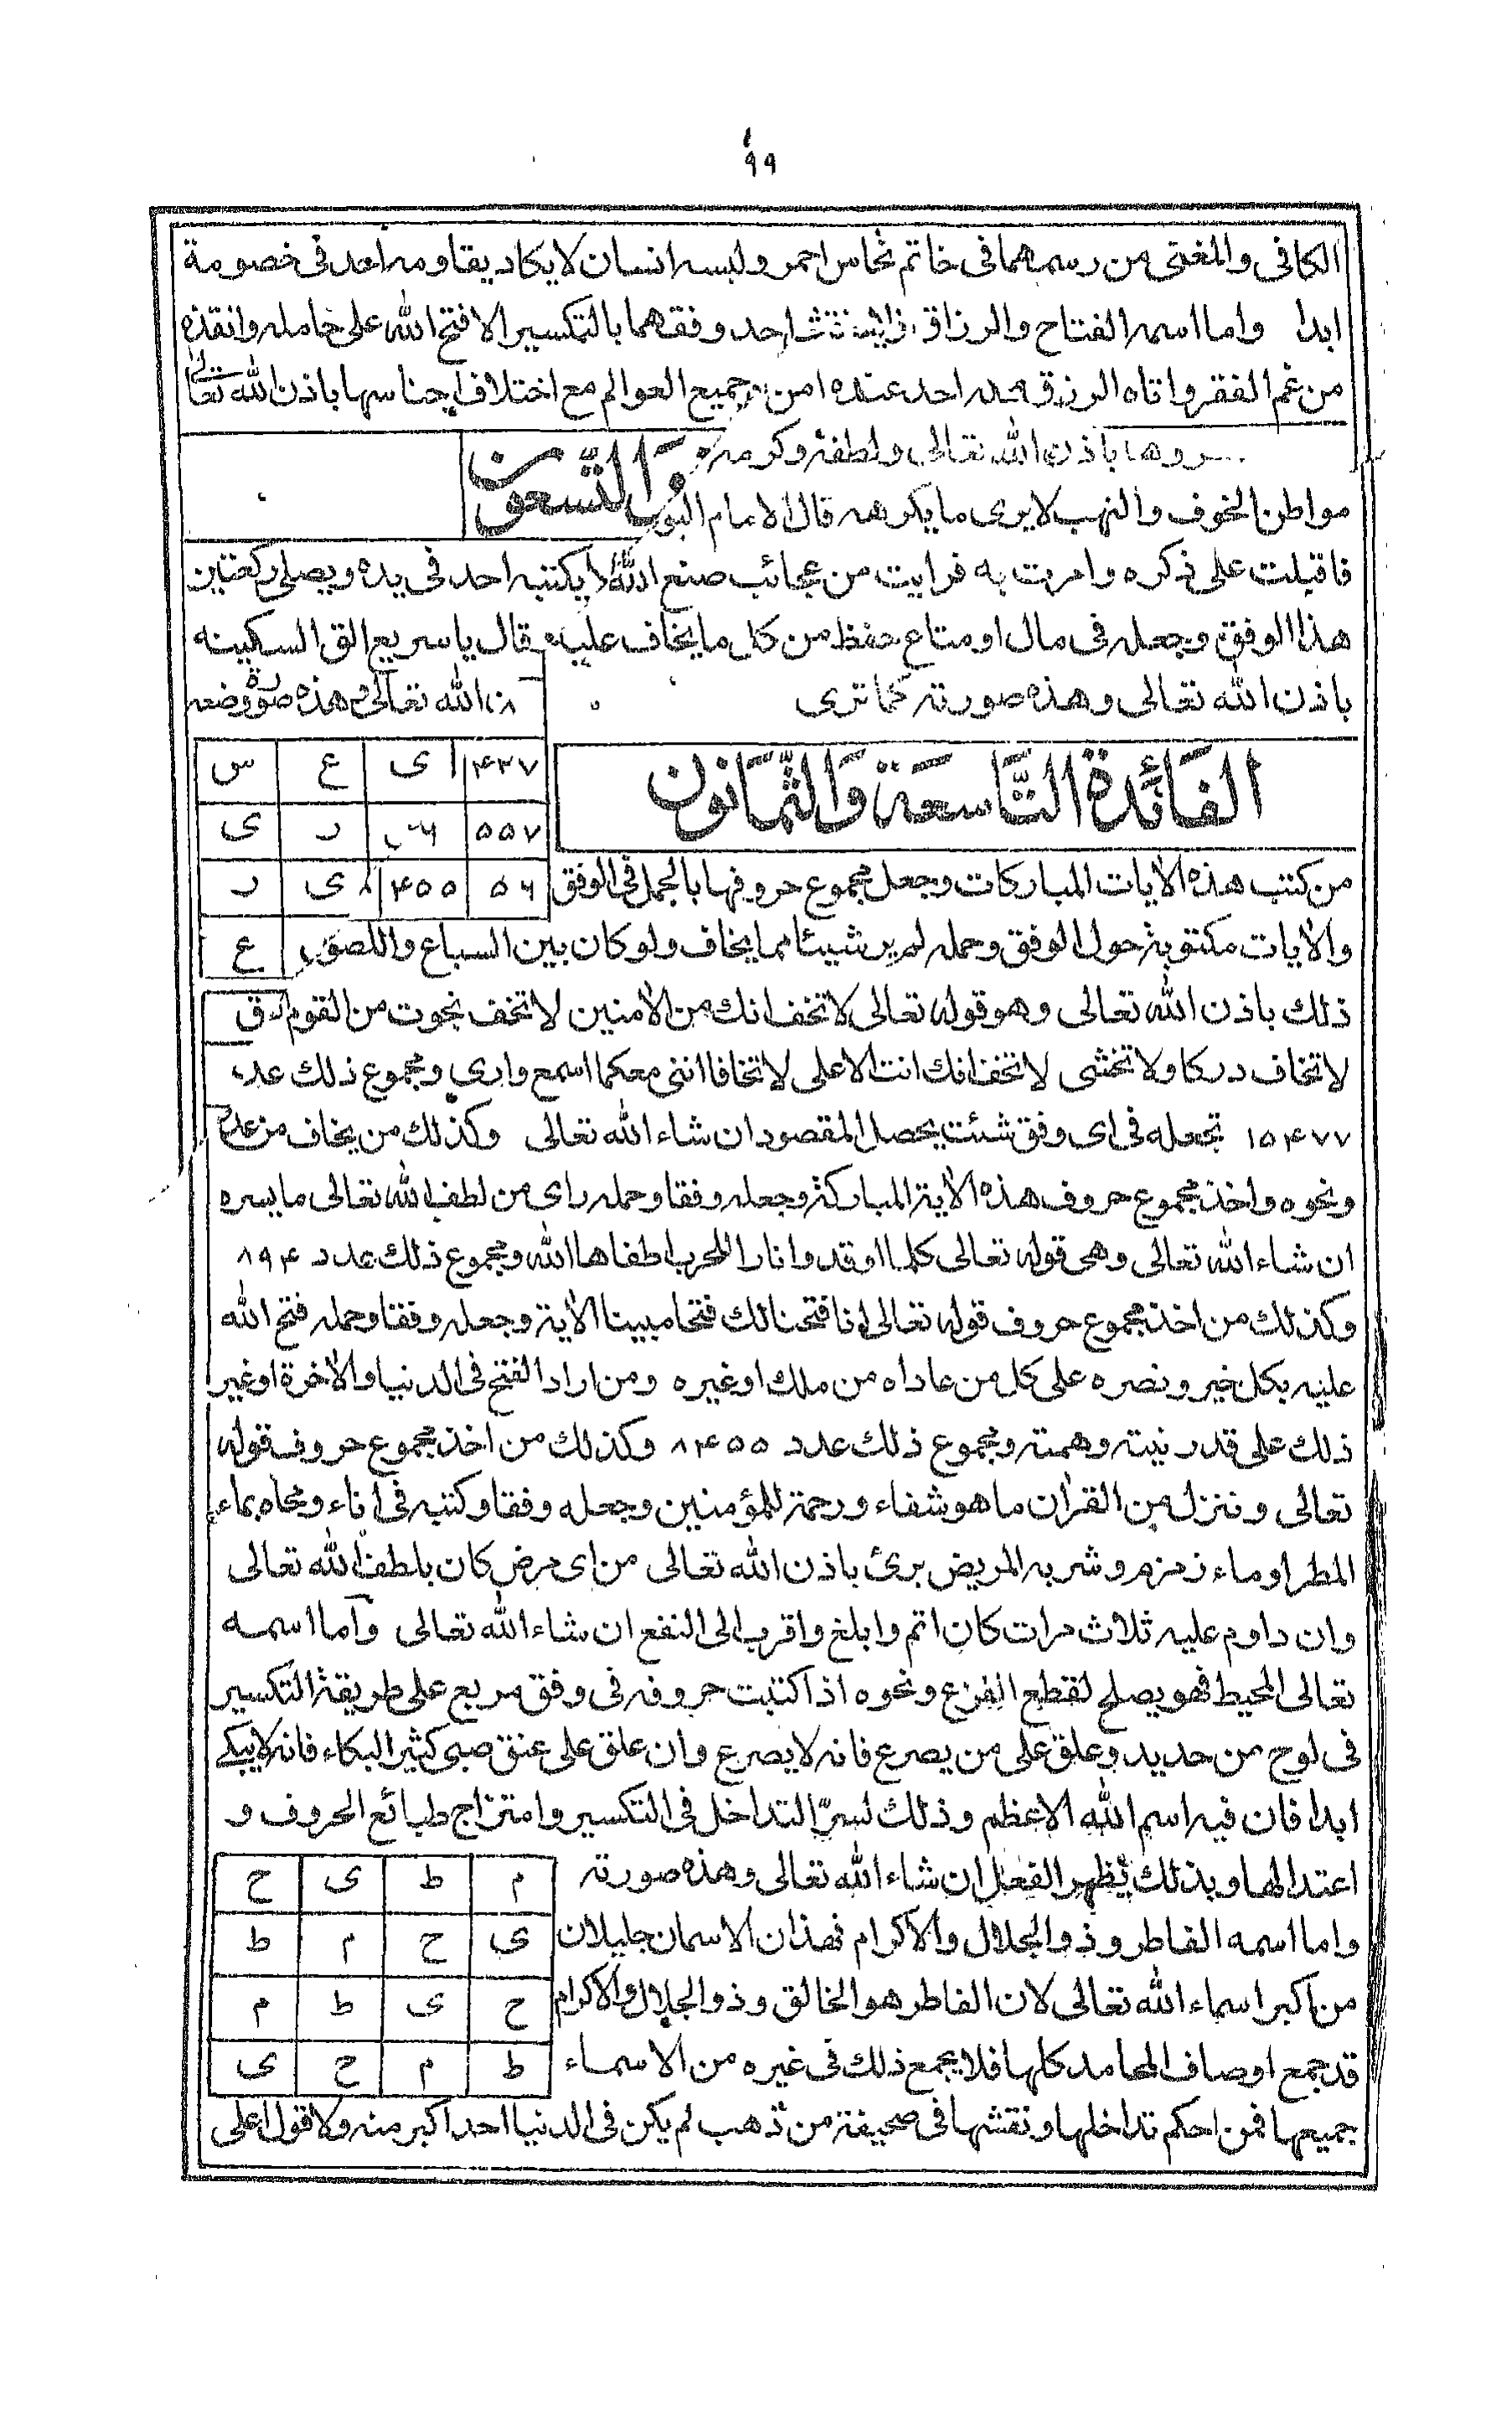 ٩٩
الكافى والمغنى من رسمهما فى خاتم نحاس احمر ولبسه انسان لا يكاد يقاومه احد فى خصومة
ابدا واما اسمه الفتاح والرزاق احد وفقهما بالتكسير الا فتح الله على حامله وانقذه
من غم الفقر واتاه الرزق احد عنده امن جميع العوالم مع اختلاف اجناسها باذن الله تعالى
باذن الله تعالى ولطفه وكرمه
والتسعون
مواطن الخوف والنهب لا يرى ما يكرهه قال الامام البونى
فاقبلت على ذكره وامرت به فرايت من عجائب صنع الله يكتبه احد فى يده ويصلى ركعتين
هذا الوفق وجعله فى مال او متاع حفظ من كل ما يخاف عليه قال يا سريع الق السكينه
باذن الله تعالى وهذه صورته كما ترى
الله تعالى وهذه صورة وضعه
٤٣٧ ى ع س
٥٥٧ ر ى
٥٦ ٤٥٥ ى ر
ع
الفائدة التاسعة والثمانون
من كتب هذه الايات المباركات وجعل مجموع حروفها بالجمل فى الوفق
والايات مكتوبة حول الوفق وحمله لم ير شيئا مما يخاف ولو كان بين السباع واللصوص
ذلك باذن الله تعالى وهو قوله تعالى لا تخف انك من الامنين لا تخف نجوت من القوم
لا تخاف دركا ولا تخشى لا تخف انك انت الاعلى لا تخافا اننى معكما اسمع وارى ومجموع ذلك عدد
١٥٤٧٧ تجعله فى اى وفق شئت يحصل المقصود ان شاء الله تعالى وكذلك من يخاف من عدو
ونحوه واخذ مجموع حروف هذه الاية المباركة وجعله وفقا وحمله راى من لطف الله تعالى ما يسره
ان شاء الله تعالى وهى قوله تعالى كلما اوقدوا نارا للحرب اطفاها الله ومجموع ذلك عدد ٨٩٤
وكذلك من اخذ مجموع حروف قوله تعالى انا فتحنا لك فتحا مبينا الاية وجعله وفقا وحمله فتح الله
عليه بكل خير ونصره على كل من عاداه من ملك او غيره ومن اراد الفتح فى الدنيا والاخرة او غير
ذلك على قدر نيته وهمته ومجموع ذلك عدد ٨٤٥٥ وكذلك من اخذ مجموع حروف قوله
تعالى وننزل من القران ما هو شفاء ورحمة للمؤمنين وجعله وفقا وكتبه فى اناء ومحاه بماء
المطر او ماء زمزم وشربه المريض برئ باذن الله تعالى من اى مرض كان بلطف الله تعالى
وان داوم عليه ثلاث مرات كان اتم وابلغ واقرب الى النفع ان شاء الله تعالى واما اسمه
تعالى المحيط فهو يصلح لقطع الفزع ونحوه اذا كتبت حروفه فى وفق مربع على طريقة التكسير
فى لوح من حديد وعلق على من يصرع فانه لا يصرع وان علق على عنق صبى كثير البكاء فانه لا يبكى
ابدا فان فيه اسم الله الاعظم وذلك لسرّ التداخل فى التكسير وامتزاج طبائع الحروف و
اعتدالها وبذلك يظهر الفعل ان شاء الله تعالى وهذه صورته
واما اسمه الفاطر وذو الجلال والاكرام فهذان الاسمان جليلان
من اكبر اسماء الله تعالى لان الفاطر هو الخالق وذو الجلال والاكرام
قد جمع اوصاف المحامد كلها فلا يجمع ذلك فى غيره من الاسماء
م ط ى ح
ى ح م ط
ح ى ط م
ط م ح ى
جميعها فمن احكم تداخلها ونقشها فى صحيفة من ذهب لم يكن فى الدنيا احد اكبر منه ولا قول اعلى